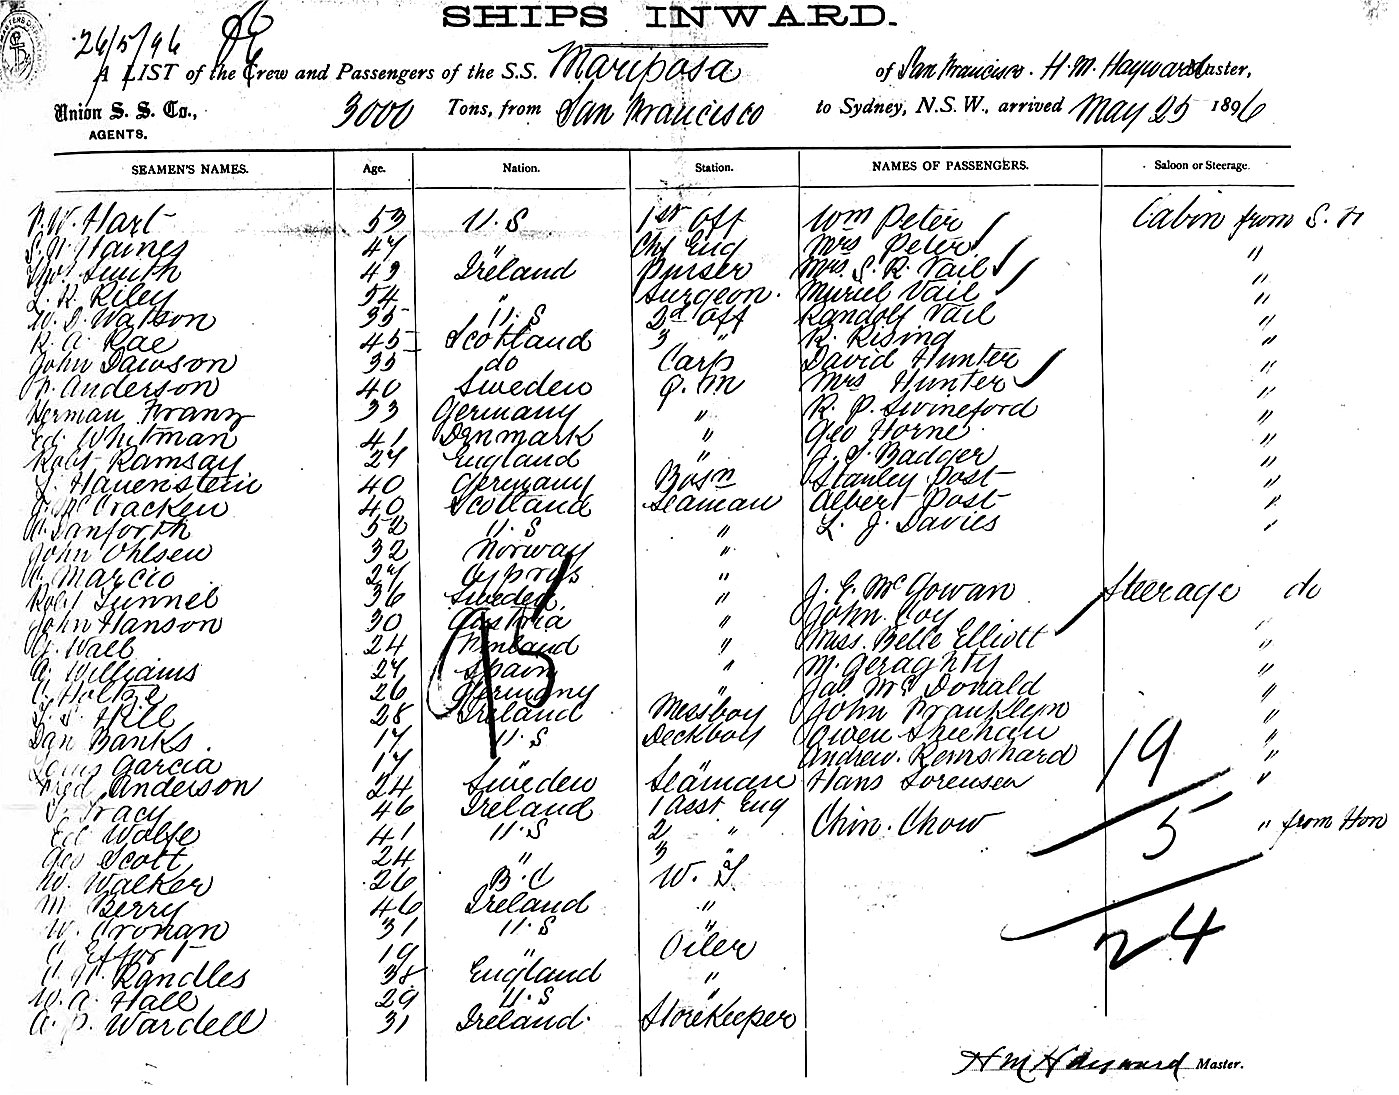 SHIPS INWARD.
26/5/96
A LIST of the Crew and Passengers of the S.S. Mariposa of San Francisco. H. M. Hayward Master,
Union S. S. Co., 3000 Tons, from San Francisco to Sydney, N.S.W., arrived May 25 1896
AGENTS.
SEAMEN'S NAMES. Age. Nation. Station. NAMES OF PASSENGERS. Saloon or Steerage.
Hart 53 U.S 1st Off Wm Peter Cabin from S. F
Haines 47 " Chf Eng Mrs Peter "
Thos. Smith 49 Ireland Purser Mrs. S. R. Vail "
Riley 54 " Surgeon. Muriel Vail "
W. D. Watson 35 U.S 2d Off Randolf Vail "
R. A. Rae 45 Scotland 3 " R. Rising "
John Dawson 35 do Carp David Hunter "
Anderson 40 Sweden Q. M Mrs Hunter "
Herman Franz 33 Germany " R. P. Swineford "
Ed. Whitman 41 Denmark " Geo Horne "
Robt Ramsay 27 England " Badger "
Hauenstein 40 Germany Bosn Stanley Post "
J. McCracken 40 Scotland Seaman Albert Post "
Danforth 52 U.S " L. J. Davies "
John Ohlsen 32 Norway "
Marcio 27 Cyprys " J. G. McGowan Steerage do
Robt Tunnel 36 Sweden. " John Coy "
John Hanson 30 Austria " Miss. Belle Elliott "
Wall 24 Finland " M. Geraghty "
A. Williams 27 Spain " Jas. McDonald "
C. Holtze 26 Germany " John Franklyn "
Hill 28 Ireland Messboy Owen Sheehan "
Dan Banks. 17 U.S Deckboy Andrew Remshard "
Louis Garcia 17 " " Hans Sorensen "
Fred Anderson 24 Sweden Seaman
Tracy 46 Ireland 1 Asst Eng Chin. Chow " from Hon
Ed Wolfe 41 U.S 2 "
Geo Scott 24 " 3 "
W. Walker 26 B.C W. T.
M. Berry 46 Ireland "
W. Croman 31 U.S "
Effort 19 " Oiler
Randles 38 England "
W. A. Hall 29 U.S "
A. P. Wardell 31 Ireland. Storekeeper
95
19
5
24
H M Hayward Master.